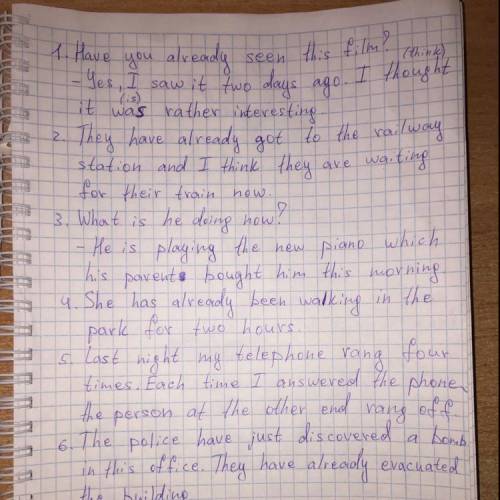 1. Have you already seen this film?
(think)
- Yes, I saw it two days ago. I thought
(is)
it was rather interesting.
2. They have already got to the railway
station and I think they are waiting
for their train now.
3. What is he doing now?
- He is playing the new piano which
his parents bought him this morning
4. She has already been walking in the
park for two hours.
5. Last night my telephone rang four
times. Each time I answered the phone,
the person at the other end rang off.
6. The police have just discovered a bomb
in this office. They have already evacuated
the building